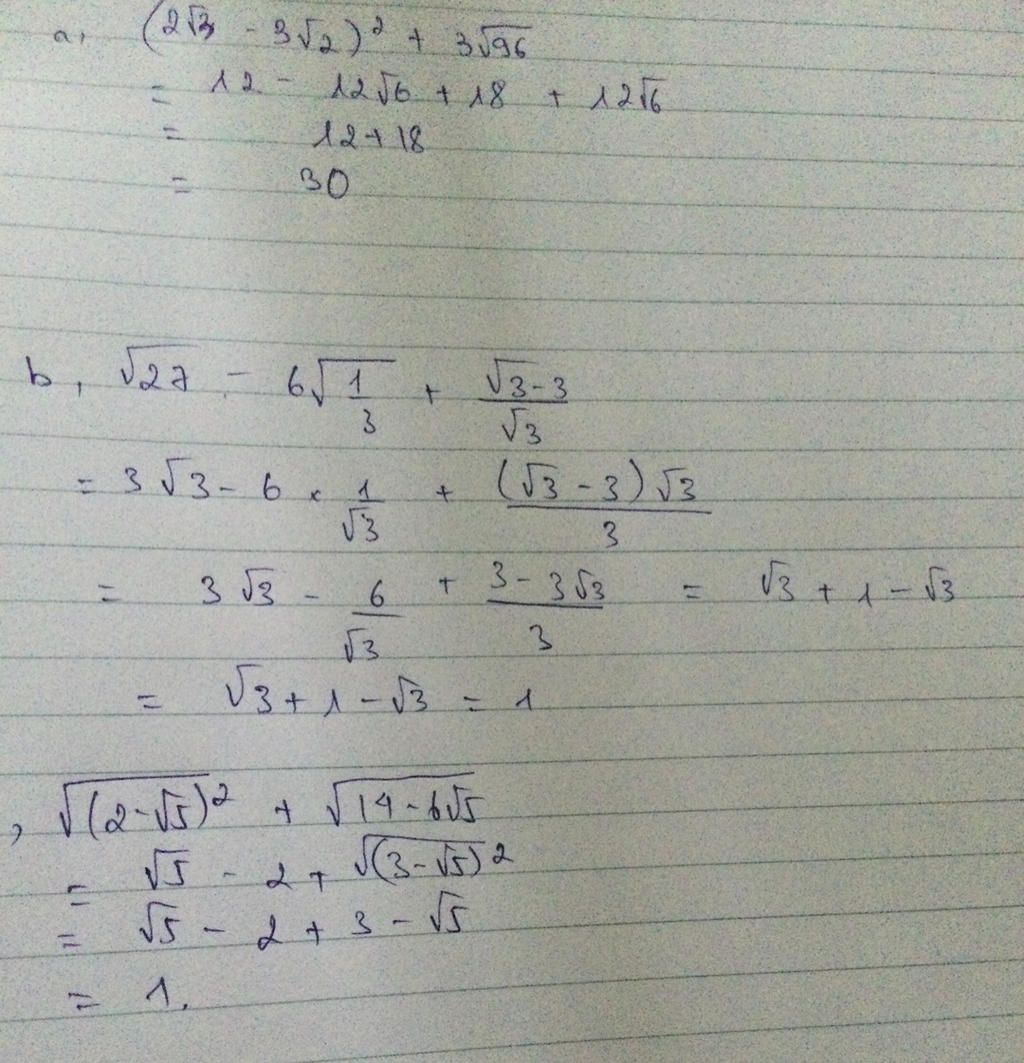 a, (2√3 - 3√2)² + 3√96
= 12 - 12√6 + 18 + 12√6
= 12 + 18
= 30
b, √27 - 6√(1/3) + (√3 - 3)/√3
= 3√3 - 6 × 1/√3 + ((√3 - 3)√3)/3
= 3√3 - 6/√3 + (3 - 3√3)/3 = √3 + 1 - √3
= √3 + 1 - √3 = 1
, √(2-√5)² + √(14 - 6√5)
= √5 - 2 + √(3-√5)²
= √5 - 2 + 3 - √5
= 1.